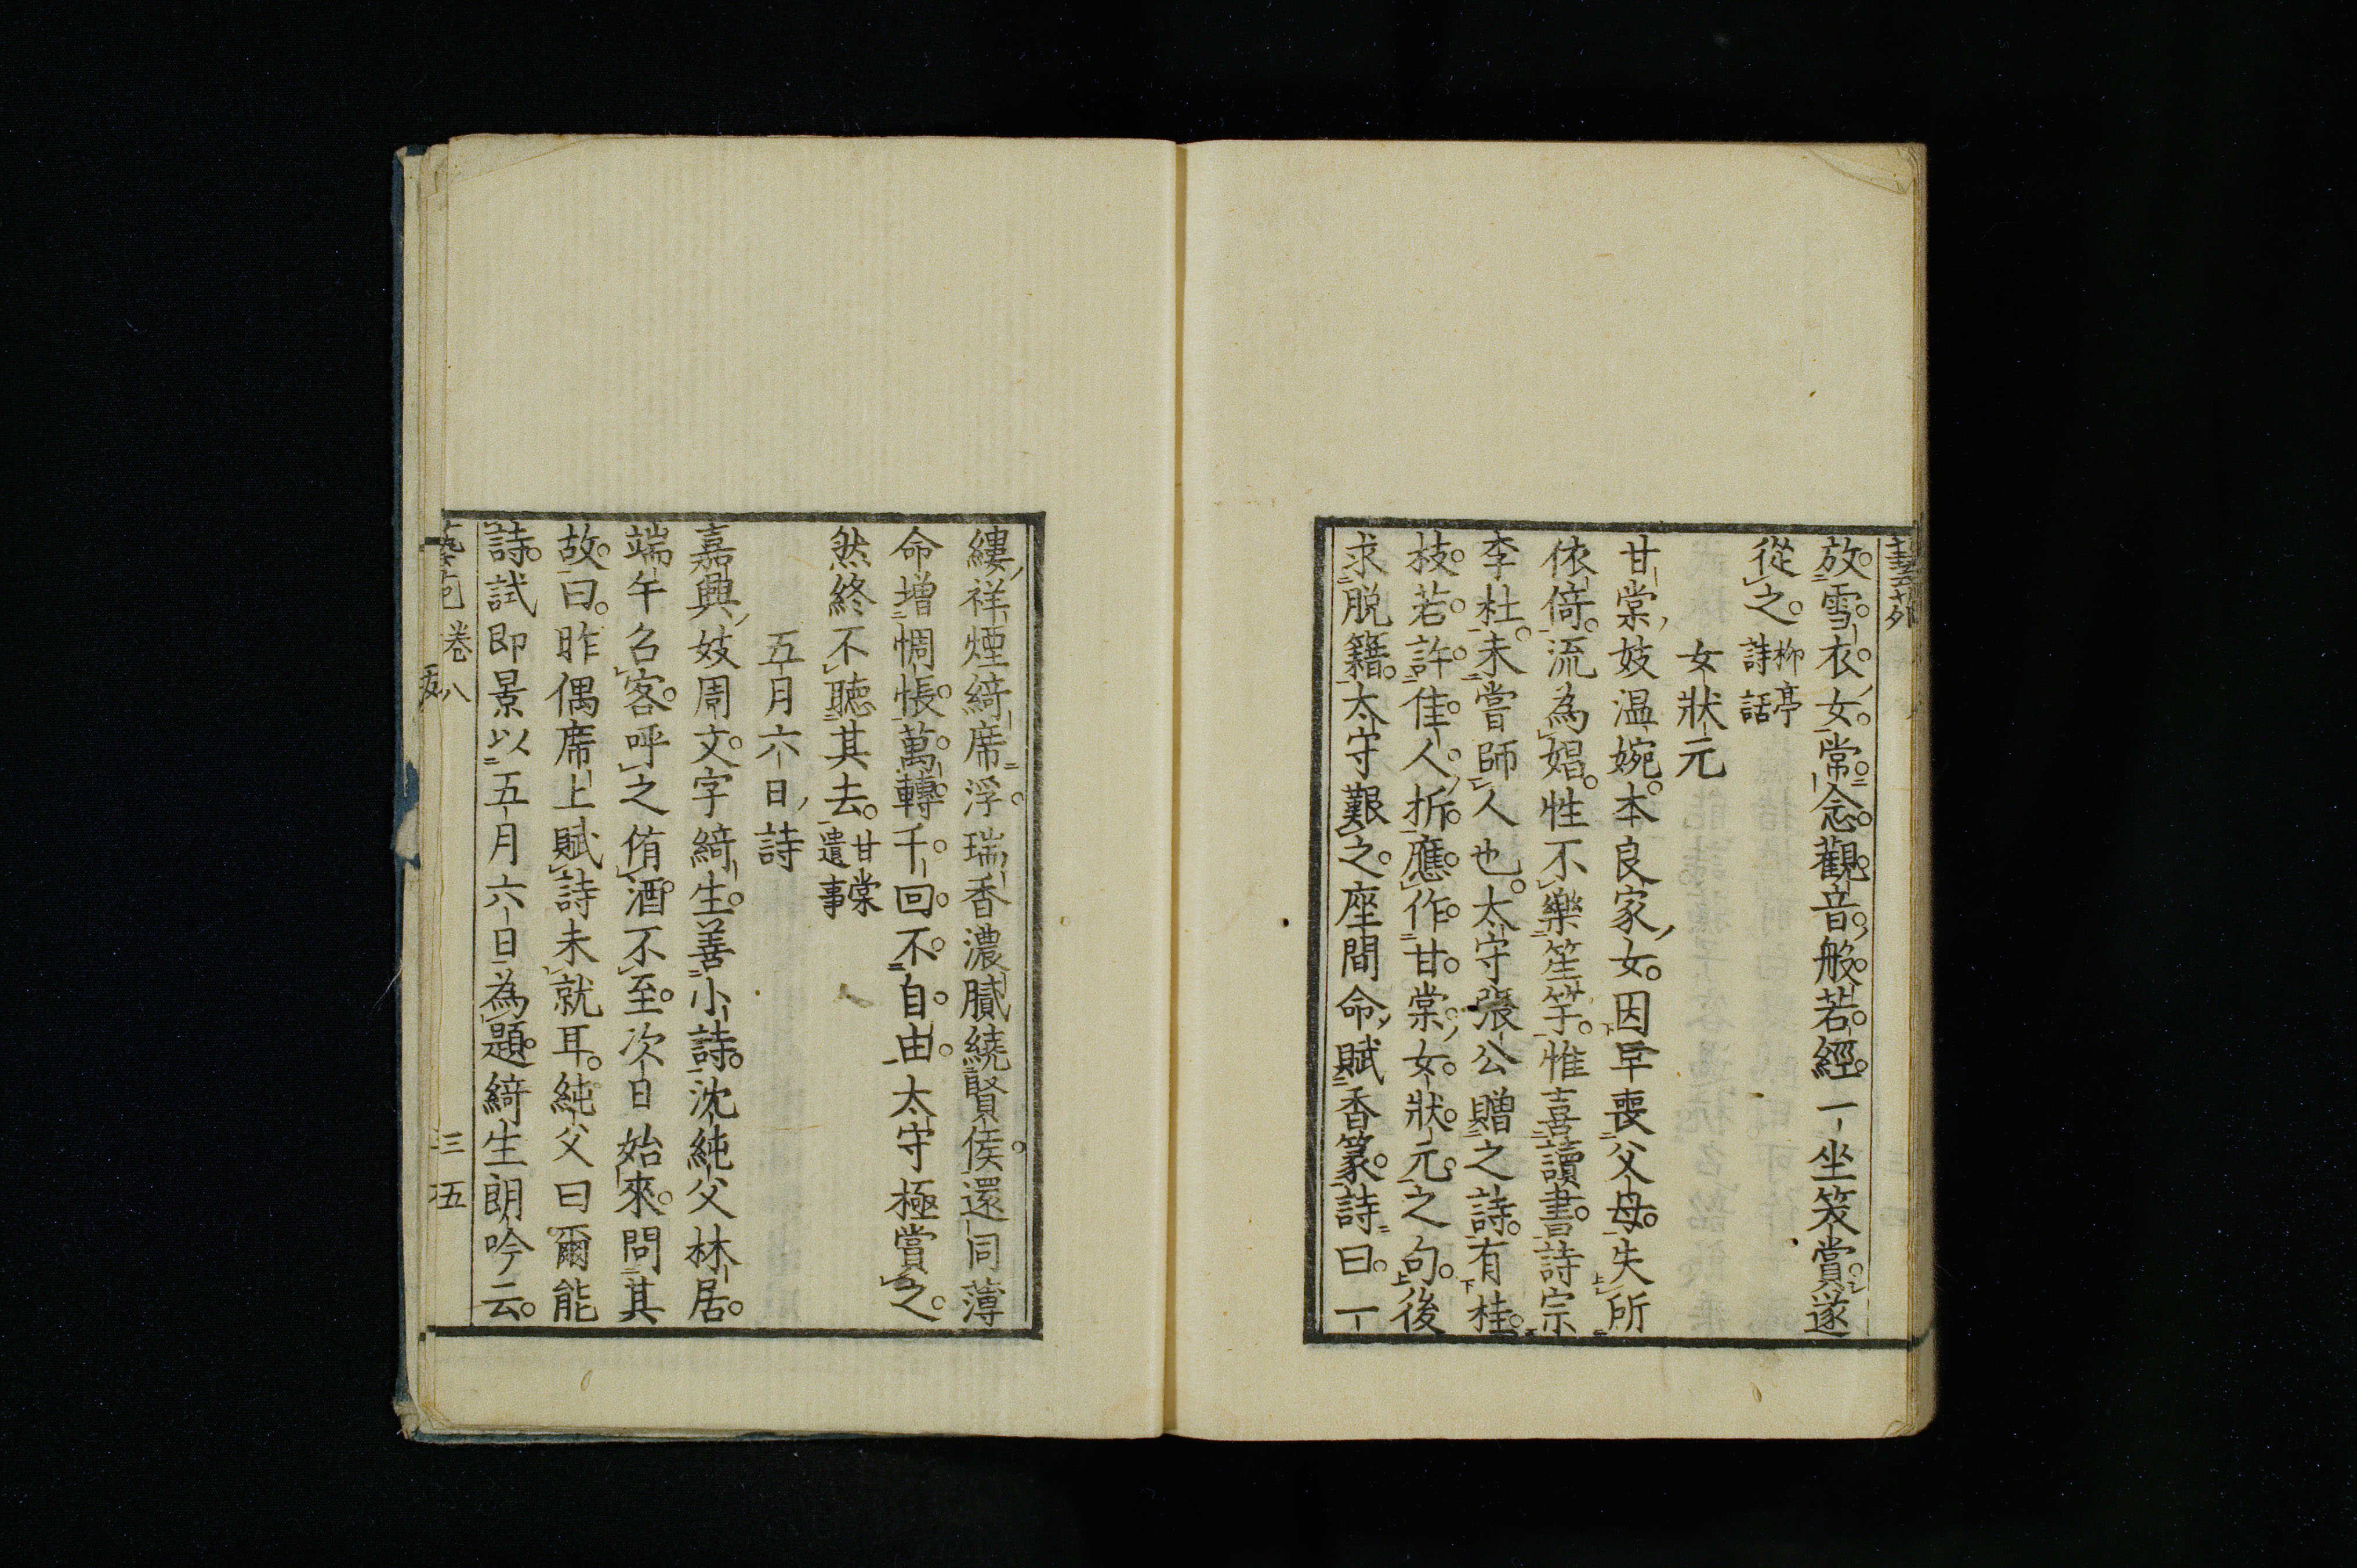 放雪衣女常念觀音般若經一坐笑賞遂
從之柳亭詩話
女狀元
甘棠妓温婉本良家女因早喪父母失所
依倚流為娼性不樂笙竽惟喜讀書詩宗
李杜未嘗師人也太守張公贈之詩有桂
枝若許佳人折應作甘棠女狀元之句後
求脱籍太守艱之座間命賦香篆詩曰一
縷祥煙綺席浮瑞香濃膩繞賢侯還同薄
命增惆悵萬轉千回不自由太守極賞之
然終不聽其去甘棠遺事
五月六日詩
嘉興妓周文字綺生善小詩沈純父林居
端午召客呼之侑酒不至次日始來問其
故曰昨偶席上賦詩未就耳純父曰爾能
詩試即景以五月六日為題綺生朗吟云
卷八
三五